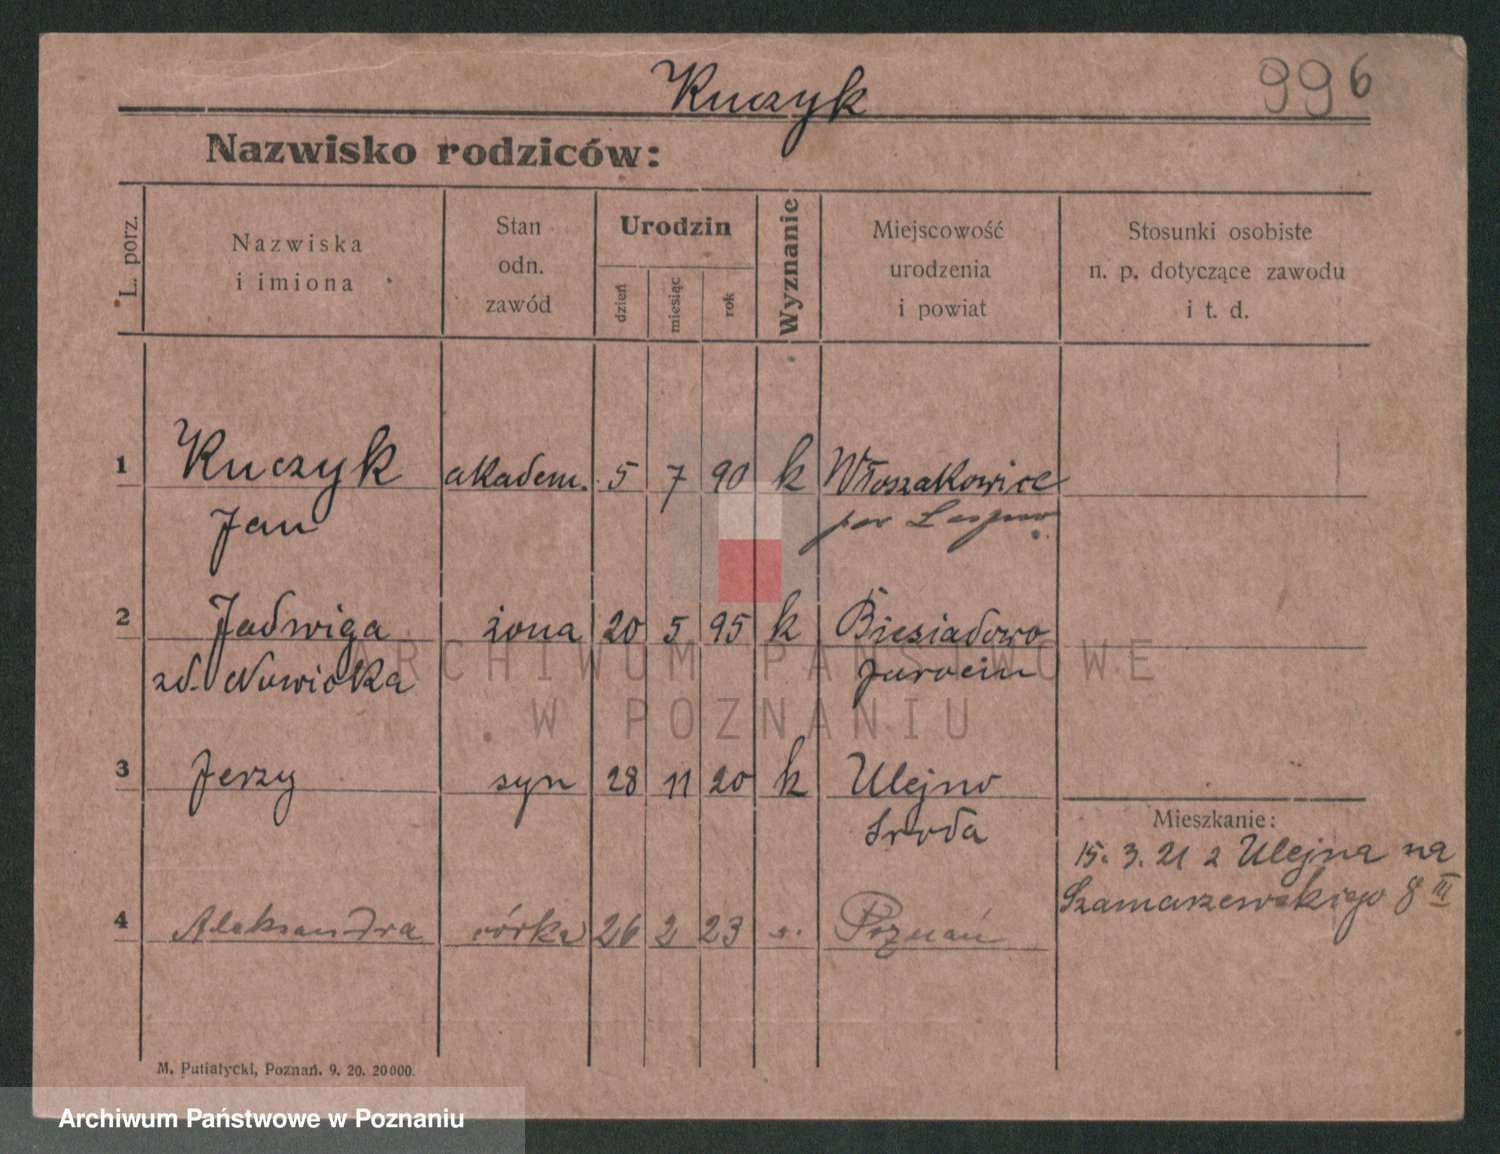 Kuczyk
996
Nazwisko rodziców:
L. porz.
Nazwiska
i imiona
Stan
odn.
zawód
Urodzin
dzień
miesiąc
rok
Wyznanie
Miejscowość
urodzenia
i powiat
Stosunki osobiste
n. p. dotyczące zawodu
i t. d.
1 Kuczyk akadem. 5 7 90 k Włoszakowice
Jan pow
2 Jadwiga żona 20 5 95 k Biesiadowo
zd. Nowicka Jarocin
3 Jerzy syn 28 11 20 k Ulejno
Sroda
Mieszkanie:
15. 3. 21 z Ulejna na
Szamarzewskiego 8 III
4 Aleksandra córka 26 2 23 Poznań
M. Putiatycki, Poznań. 9. 20. 20000.
ARCHIWUM PAŃSTWOWE
W POZNANIU
Archiwum Państwowe w Poznaniu